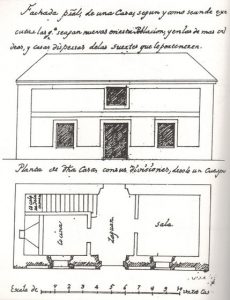 Fachada pral, de una Casa, segun y como se han de exe
cutar las q.e se agan nuevas en esta Poblacion, y en las demas al
deas, y casas dispersas de las suertes que lo pertenecen.
Planta de dha Casa, con sus divisiones, desde un Cuerpo
Cocina
Zaguan
sala
Escala de
1 2 3 4 5 6 7 8 9 10 varas Cas